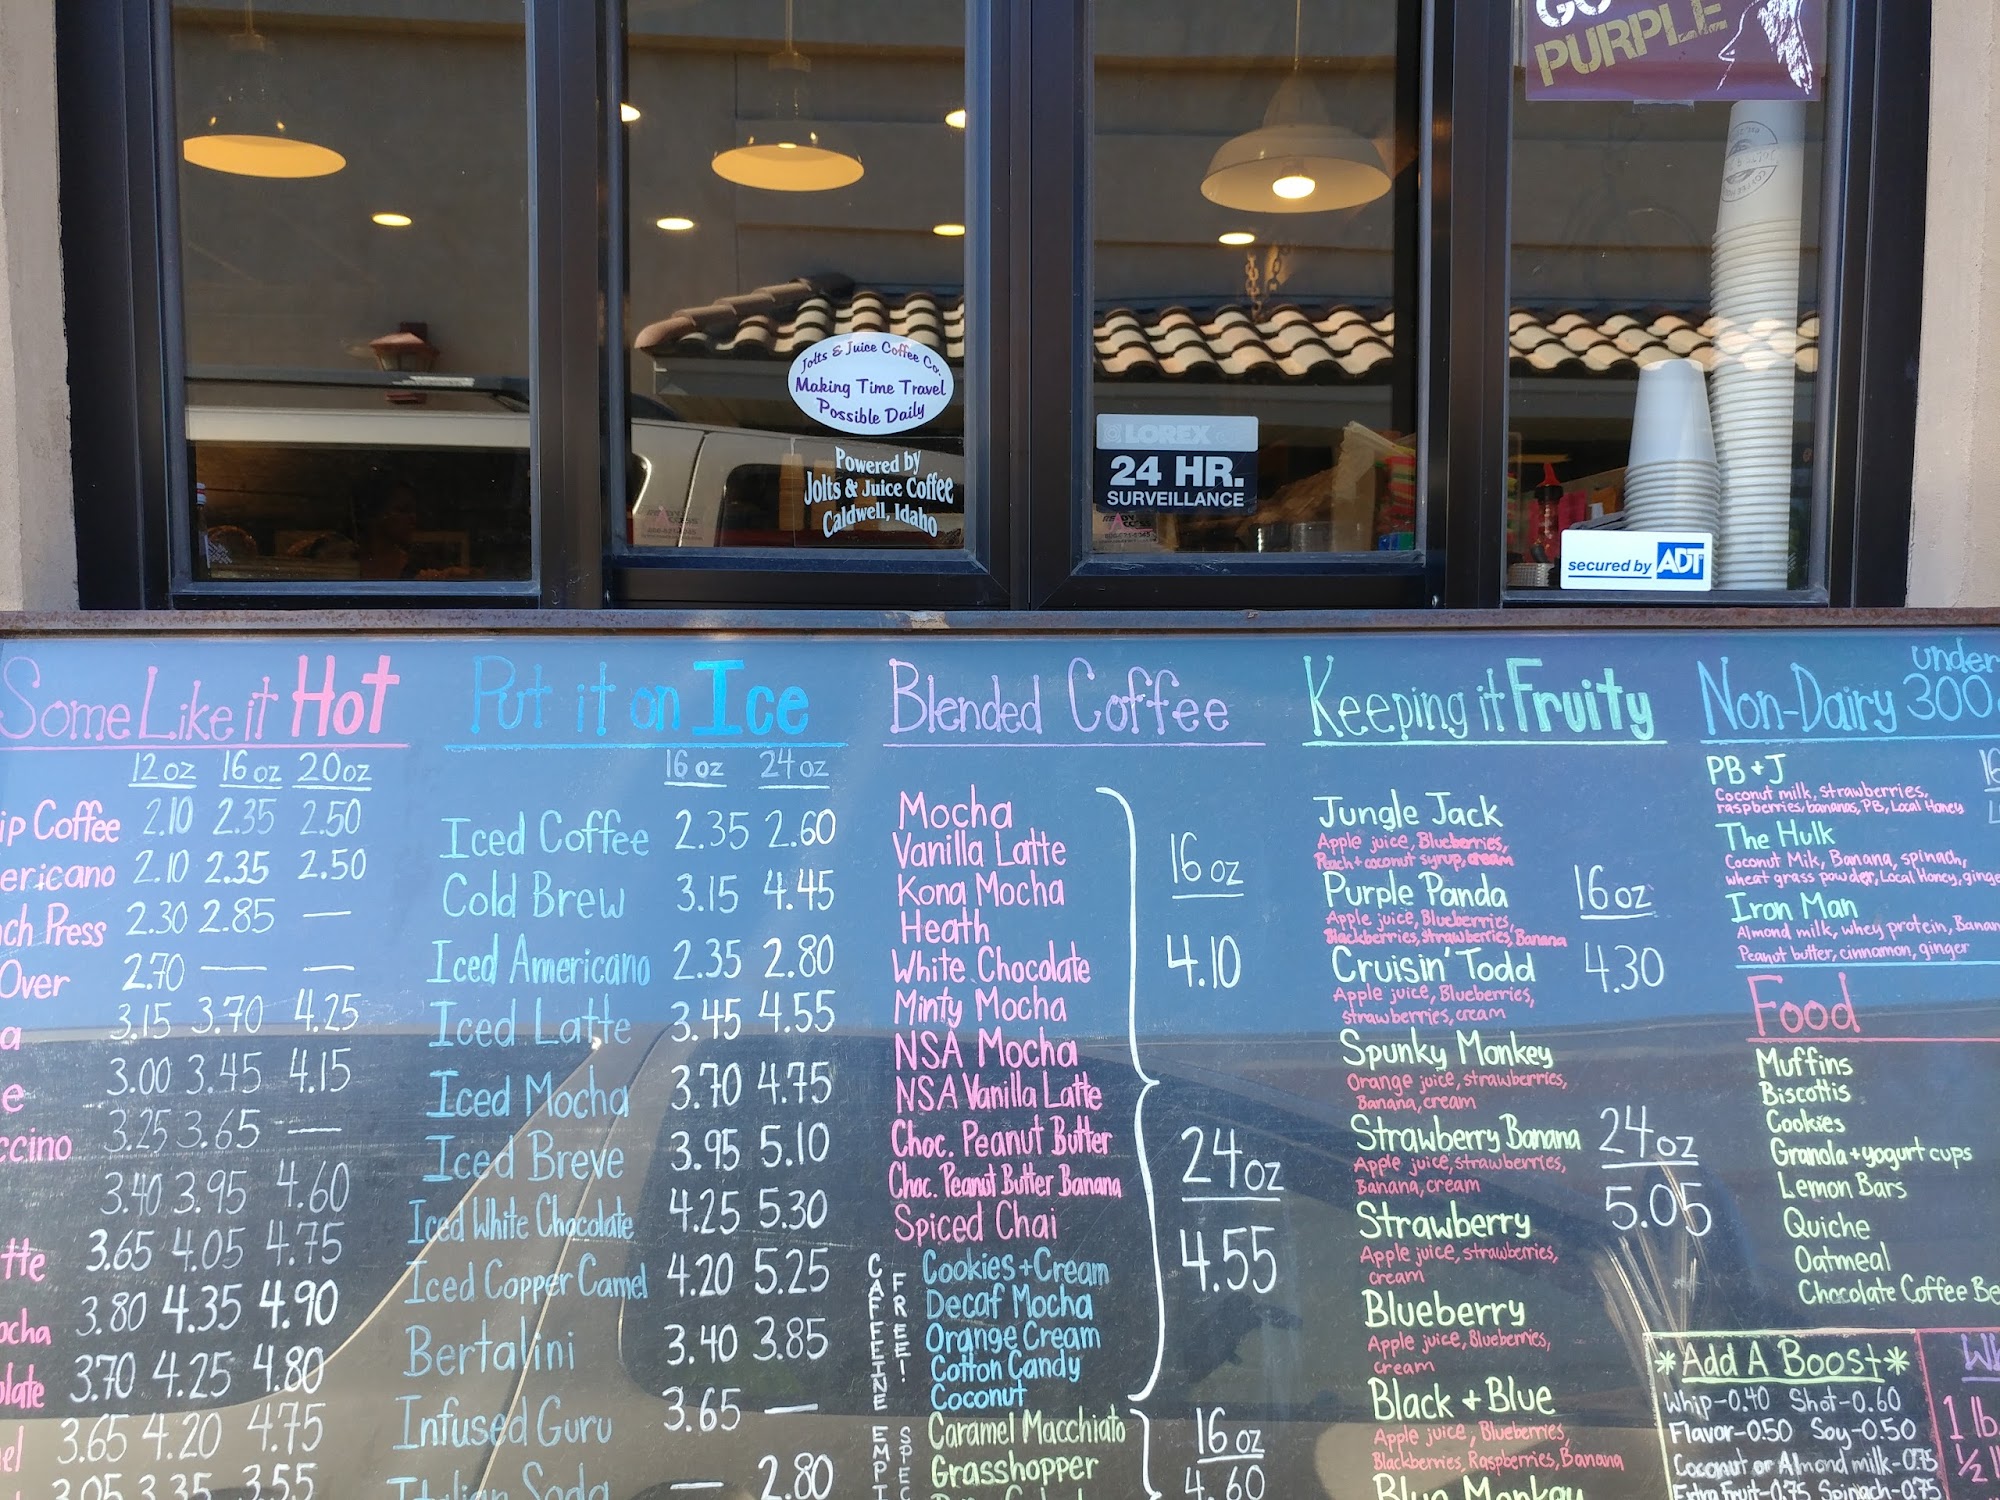 GO
PURPLE
Jolts & Juice Coffee Co.
Making Time Travel
Possible Daily
Powered by
Jolts & Juice Coffee
Caldwell, Idaho
LOREX
24 HR.
SURVEILLANCE
secured by ADT
Some Like it Hot
12oz 16oz 20oz
ip Coffee 2.10 2.35 2.50
ericano 2.10 2.35 2.50
ch Press 2.30 2.85 —
Over 2.70 — —
a 3.15 3.70 4.25
e 3.00 3.45 4.15
ccino 3.25 3.65 —
3.40 3.95 4.60
tte 3.65 4.05 4.75
ocha 3.80 4.35 4.90
olate 3.70 4.25 4.80
el 3.65 4.20 4.75
3.05 3.35 3.55
Put it on Ice
16oz 24oz
Iced Coffee 2.35 2.60
Cold Brew 3.15 4.45
Iced Americano 2.35 2.80
Iced Latte 3.45 4.55
Iced Mocha 3.70 4.75
Iced Breve 3.95 5.10
Iced White Chocolate 4.25 5.30
Iced Copper Camel 4.20 5.25
Bertalini 3.40 3.85
Infused Guru 3.65 —
Italian Soda — 2.80
Blended Coffee
Mocha
Vanilla Latte
Kona Mocha
Heath
White Chocolate
Minty Mocha
NSA Mocha
NSA Vanilla Latte
Choc. Peanut Butter
Choc. Peanut Butter Banana
Spiced Chai
CAFFEINE FREE!
Cookies+Cream
Decaf Mocha
Orange Cream
Cotton Candy
Coconut
16oz
4.10
24oz
4.55
Caramel Macchiato
Grasshopper
16oz
4.60
Keeping it Fruity
Jungle Jack
Apple juice, Blueberries,
Peach + coconut syrup, cream
Purple Panda
Apple juice, Blueberries,
Blackberries, strawberries, Banana
Cruisin' Todd
Apple juice, Blueberries,
strawberries, cream
Spunky Monkey
Orange juice, strawberries,
Banana, cream
Strawberry Banana
Apple juice, strawberries,
Banana, cream
Strawberry
Apple juice, strawberries,
cream
Blueberry
Apple juice, Blueberries,
cream
Black + Blue
Apple juice, Blueberries,
Blackberries, Raspberries, Banana
Blue Monkey
16oz
4.30
24oz
5.05
Non-Dairy under 300
PB + J
Coconut milk, strawberries,
raspberries, bananas, PB, Local Honey
The Hulk
Coconut Milk, Banana, spinach,
wheat grass powder, Local Honey, ginge
Iron Man
Almond milk, whey protein, Banan
Peanut butter, cinnamon, ginger
Food
Muffins
Biscottis
Cookies
Granola + yogurt cups
Lemon Bars
Quiche
Oatmeal
Chocolate Coffee Be
*Add A Boost*
Whip-0.40 Shot-0.60
Flavor-0.50 Soy-0.50
Coconut or Almond milk-0.75
Extra Fruit-0.75 Spinach-0.75
1 lb.
1/2 l